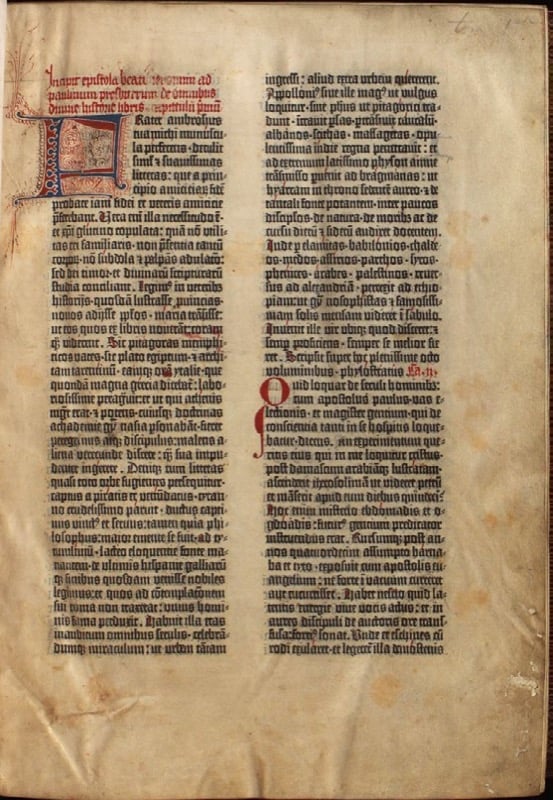 Incipit epistola beati iheronimi ad
paulinum presbiterum de omnibus
diuine historie libris capitulū p̄mū
Frater ambrosius
tua michi munuscu-
la ꝑferens · detulit
siml̄ ⁊ suauissimas
litteras: que a prin-
cipio amicicia⁊ · fidē
probate iam fidei et veteris amicicie
p̄ferebant. Vera eni illa necessitudo ē ·
et xp̄i glutino copulata: quā nō vtili-
tas rei familiaris · non p̄sentia tantū
corpoꝝ · nō subdola ⁊ palpās adulac̄o:
sed dei timor · et diuinaꝝ scripturarū
studia conciliant. Legim⁹ in veteribꝫ
historijs · quosdā lustrasse ꝓuincias ·
nouos adijsse pp̄los · maria trāsisse:
ut eos quos ex libris nouerāt: coram
qꝫ viderent. Sic pitagoras memphi-
ticos vates · sic plato egiptum · ⁊ archi-
tam tarentinū · eamqꝫ orā ytalie · que
quondā magna grecia dicebat̄: labo-
riosissime peragrauit: et ut qui athenis
mgr̄ erat · ⁊ potens · cuiusqꝫ doctrinas
achademie gignasia ꝑsonabāt · fieret
peregrinus atqꝫ discipulus: malens a-
liena verecunde discere: qꝫ sua impu-
denter ingerere. Deniqꝫ cum litteras
quasi toto orbe fugientes persequitur ·
captus a piratis et venūdatus · tyran-
no crudelissimo paruit · ductus capti-
uus vinct⁹ et seruus: tamen quia phi-
losophus: maior emente se fuit · ad ty-
tumliuiū · lacteo eloquentie fonte ma-
nantem · de vltimis hispanie galliarū
qꝫ finibus quosdam venisse nobiles
legimus: et quos ad cōtemplac̄onem
sui roma non traxerat: vnius homi-
nis fama perduxit. Habuit illa etas
inauditum omnibus seculis · celebrā-
dumqꝫ miraculum: ut vrbem tantam
ingressi: aliud extra vrbem quererent.
Apolloni⁹ siue ille mag⁹ ut vulgus
loquitur · siue ph̄us · ut pitagorici tra-
dunt · intrauit ꝑsas · ꝑtransiuit caucasū ·
albanos · scithas · massagetas · opu-
lentissima indie regna penetrauit: et
ad extremum latissimo physon amne
trāsmisso ꝑuenit ad bragmanas: ut
hyarcam in throno sedentē aureo · ⁊ de
tantali fonte potantem · inter paucos
discipl̄os · de natura · de moribꝫ ac de
cursu dierū ⁊ siderū audiret docentem.
Inde ꝑ elamitas · babilonios · chalde-
os · medos · assirios · parthos · syros ·
phenices · arabes · palestinos · reuer-
sus ad alexandriā · perrexit ad ethio-
piam: ut gignosophistas ⁊ famosissi-
mam solis mensam videret ī sabulo.
Inuenit ille vir vbiqꝫ quod disceret: ⁊
semꝑ proficiens · semper se melior fie-
ret. Scripsit super hoc plenissime octo
voluminibus · phylostratus. Ca. ij.
Quid loquar de seculi hominibꝫ:
cum apostolus paulus · vas e-
lectionis · et magister gentium · qui de
conscientia tanti in se hospitis loque-
batur · dicens. An experimentum que-
ritis eius qui in me loquitur cristus.
post damascum arabiāqꝫ lustratam ·
ascenderit iherosolimā ut videret petrū
et māserit apud eum diebus quindeci.
Hoc enim misterio ebdomadis et o-
gdoadis: futur⁹ gentium predicator
instruendus erat. Rursumqꝫ post an-
nos quatuordecim assumpto barna-
ba et tyto · exposuit cum apostolis eu-
angelium: ne forte ī vacuum curreret
aut cucurrisset. Habet nescio quid la-
tentis energie · viue vocis actus: et in
aures discipuli de auctoris ore trans-
fusa: forci⁹ sonat. Vnde et eschines cū
rodi exularet · et legeret̄ illa demostenis